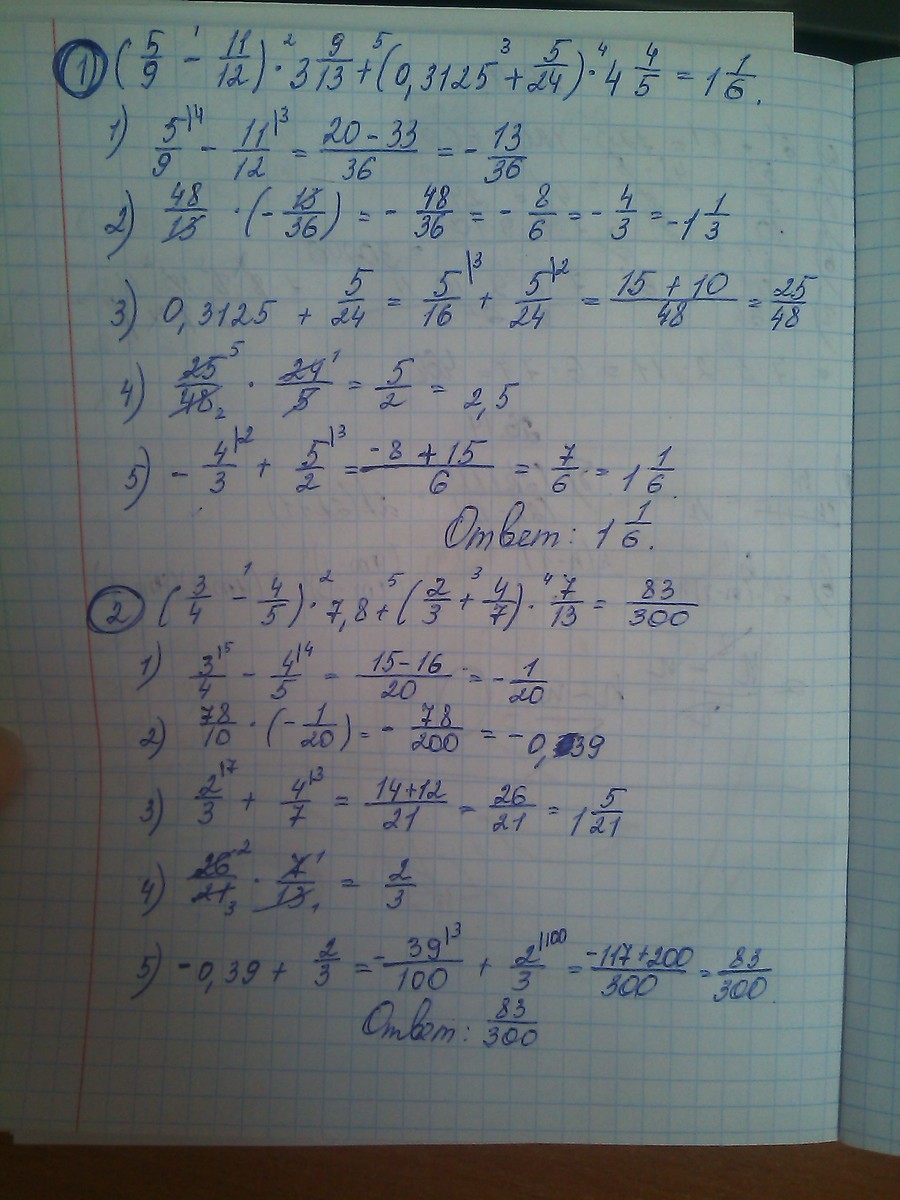 1) (5/9 - 11/12) · 3 9/13 + (0,3125 + 5/24) · 4 4/5 = 1 1/6.
1) 5/9 - 11/12 = (20 - 33)/36 = - 13/36
2) 48/13 · (- 13/36) = - 48/36 = - 8/6 = - 4/3 = -1 1/3
3) 0,3125 + 5/24 = 5/16 + 5/24 = (15 + 10)/48 = 25/48
4) 25/48 · 24/5 = 5/2 = 2,5
5) - 4/3 + 5/2 = (-8 + 15)/6 = 7/6 = 1 1/6
Ответ: 1 1/6.
2) (3/4 - 4/5) · 7,8 + (2/3 + 4/7) · 7/13 = 83/300
1) 3/4 - 4/5 = (15 - 16)/20 = - 1/20
2) 78/10 · (- 1/20) = - 78/200 = -0,39
3) 2/3 + 4/7 = (14+12)/21 = 26/21 = 1 5/21
4) 26/21 · 7/13 = 2/3
5) -0,39 + 2/3 = - 39/100 + 2/3 = (-117+200)/300 = 83/300
Ответ: 83/300